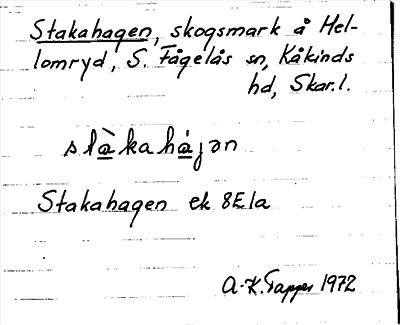 Stakahagen, skogsmark å Hel-
lomryd, S. Fågelås sn, Kåkinds
hd, Skar.l.
stàkahágən
Stakahagen ek 8E1a
A-K. Tapper 1972